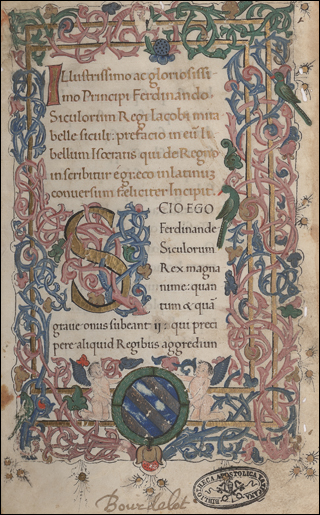 Illustrissimo ac gloriosissi
mo Principi Ferdinando
Siculorum Regi Iacobi mira
belle siculi: prefacio in eũ li
bellum Isocratis qui de Regno
inscribitur e greco in latinuz
conversum fæliciter Incipit.
SCIO EGO
Ferdinande
Siculorum
Rex magna
nime: quan
tum & quã
graue onus subeant ii: qui preci
pere aliquid Regibus aggrediun
Bourdelot
BIBLIOTHECA APOSTOLICA VATICANA